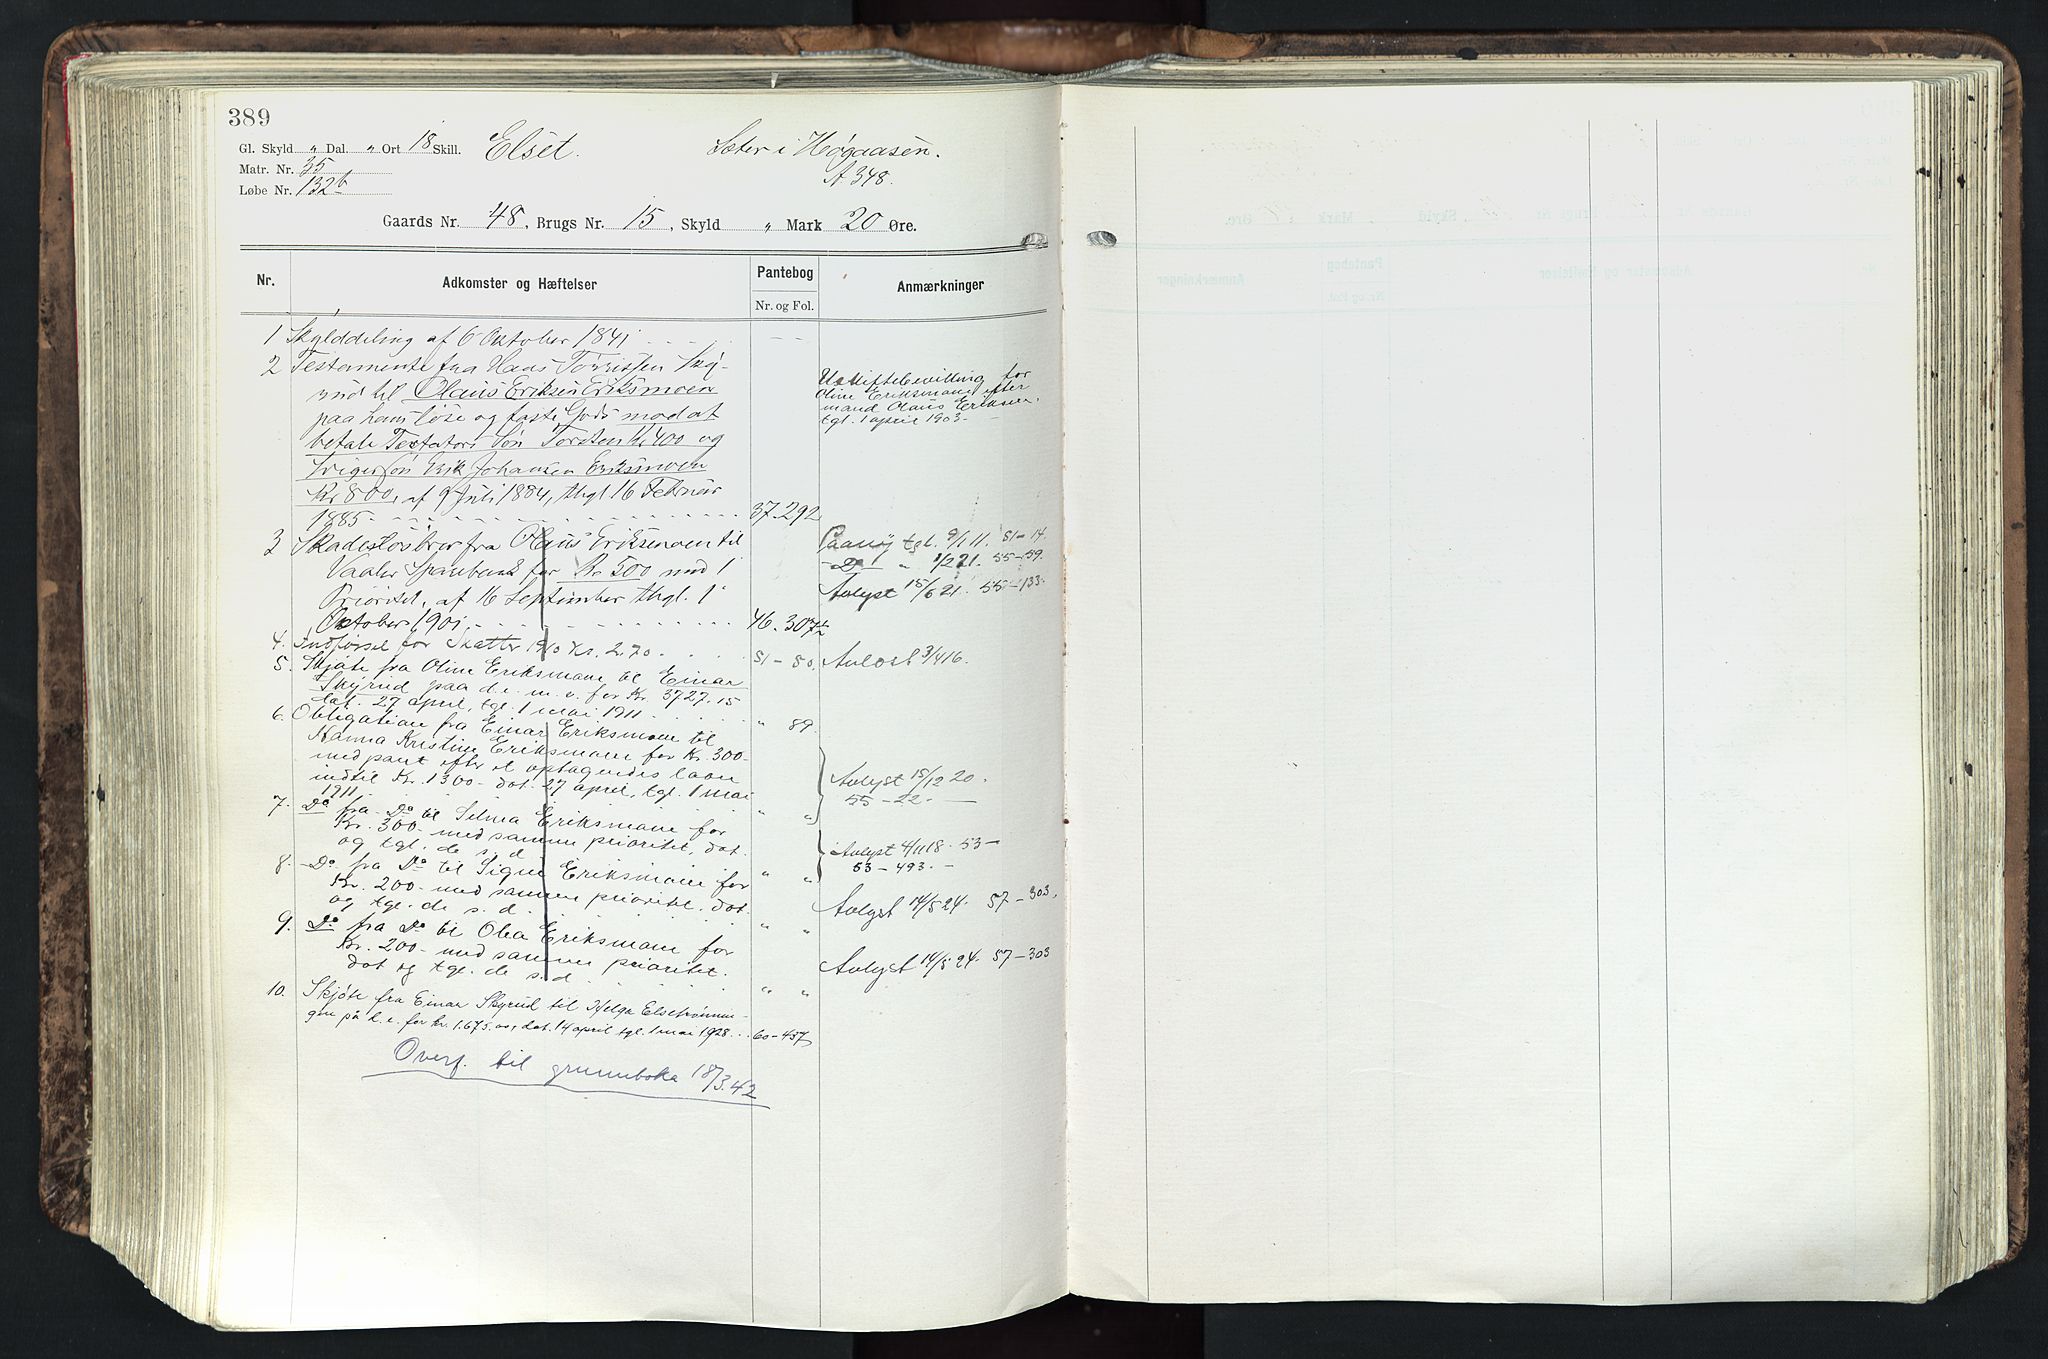 389
Gl. Skyld " Dal. " Ort 18 Skill. Elset. Sæter i Høgaasen.
Matr. Nr. 35 A 348.
Løbe Nr. 132b
Gaards Nr. 48, Brugs Nr. 15, Skyld " Mark 20 Øre.
Nr. Adkomster og Hæftelser Pantebog Anmærkninger
Nr. og Fol.
1 Skylddeling af 6 Oktober 1841
2 Testamente fra Hans Tørrissen Sky-
rud til Olaus Eriksen Eriksmoen
paa hans løse og faste Gods mod at
betale Testators Søn Torsten Kr 400 og
Svigersøn Erik Johansen Eriksmoen
Kr 800, af 9 Juli 1884, thgl 16 Februar
1885 37.292
Uskiftebevilling for
Oline Eriksmoen efter
mand Olaus Eriksen.
tgl. 1 april 1903
3 Skadesløsbrev fra Olaus Eriksmoen til
Vaaler Sparebank for Kr 500 med 1
Prioritet, af 16 September thgl. 1
Oktober 1901 46.307 1/2
tgl. 9/1 11. 51-14.
Do " 1/2 21. 55-59.
Avlyst 15/6 21. 55-133.
4. Indførsel for Skatter 1910 Kr. 2.70 51-50 Avløst 3/4 16.
5. Skjøte fra Oline Eriksmoen til Einar
Skyrud paa d.e. m. v. for Kr. 3727.15
dat. 27 april, tgl. 1 mai 1911 " 89.
6. Obligation fra Einar Eriksmoen til
Hanna Kristine Eriksmoen for Kr. 300-
med pant efter et optagendes laan
indtil Kr. 1300- dat. 27 april, tgl. 1 mai
1911. " "
Avlyst 15/12 20.
55-22.
7. Do fra Do til Selma Eriksmoen for
Kr. 300- med samme prioritet, dat.
og tgl. de s. d. " "
Avlyst 4/11 18. 53-
53-493.
8. Do fra Do til Signe Eriksmoen for
Kr. 200- med samme prioritet, dat.
og tgl. de s. d. " " Avlyst 14/5 24. 57-303.
9. Do fra Do til Olea Eriksmoen for
Kr. 200- med samme prioritet.
dat og tgl. de s. d. " " Avlyst 14/5 24. 57-303
10. Skjøte fra Einar Skyrud til Helga Elsetrønnin-
gen på d. e. for kr. 1.675.00, dat. 14 april tgl. 1 mai 1928 60-437
Overf. til grunnboka 18/3.42